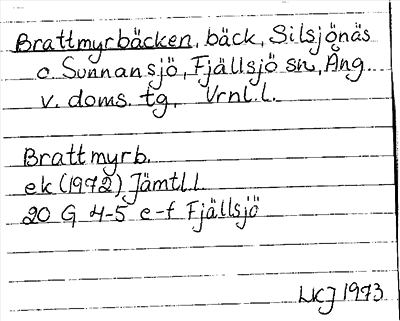 Brattmyrbäcken, bäck, Silsjönäs
o. Sunnansjö, Fjällsjö sn, Ång.
v. doms. tg, Vrnl.l.
Brattmyrb.
ek (1972) Jämtl.l
20 G 4-5 e-f Fjällsjö
LKJ 1973